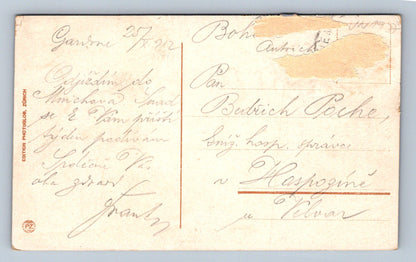 Gardone 25/X 912
Odjíždím do
Mnichova. Snad
se k Vám příští
týden podívám
Srdečně Vás
oba zdraví
Frant.
EDITION PHOTOGLOB, ZÜRICH
PZ
Austrich
Pan
Bedřich Poche,
hosp. správce
v Haspozíně
u Velvar